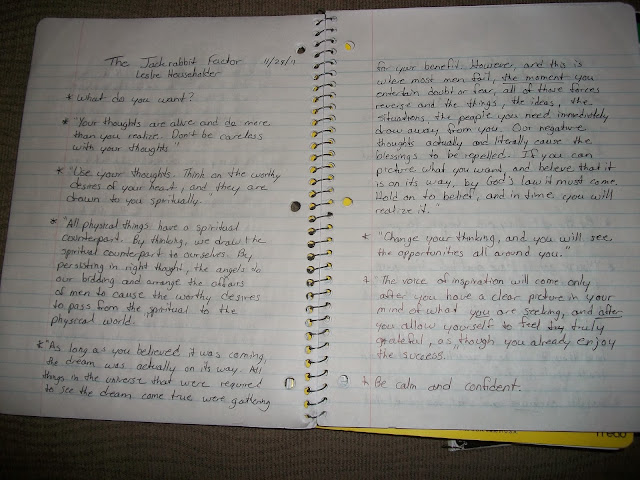 The Jackrabbit Factor 11/28/11
Leslie Householder
* What do you want?
* "Your thoughts are alive and do more
than you realize. Don't be careless
with your thoughts"
* "Use your thoughts. Think on the worthy
desires of your heart, and they are
drawn to you spiritually."
* "All physical things have a spiritual
counterpart. By thinking, we draw the
spiritual counterpart to ourselves. By
persisting in right thought, the angels do
our bidding and arrange the affairs
of men to cause the worthy desires
to pass from the spiritual to the
physical world."
* "As long as you believed it was coming,
the dream was actually on its way. All
things in the universe that were required
to see the dream come true were gathering
for your benefit. However, and this is
where most men fail, the moment you
entertain doubt or fear, all of those forces
reverse and the things, the ideas, the
situations, the people you need immediately
draw away from you. Our negative
thoughts actually and literally cause the
blessings to be repelled. If you can
picture what you want, and believe that it
is on its way, by God's law it must come.
Hold on to belief, and in time you will
realize it."
* "Change your thinking, and you will see
the opportunities all around you."
* "The voice of inspiration will come only
after you have a clear picture in your
mind of what you are seeking, and after
you allow yourself to feel truly
grateful, as though you already enjoy
the success."
* Be calm and confident.